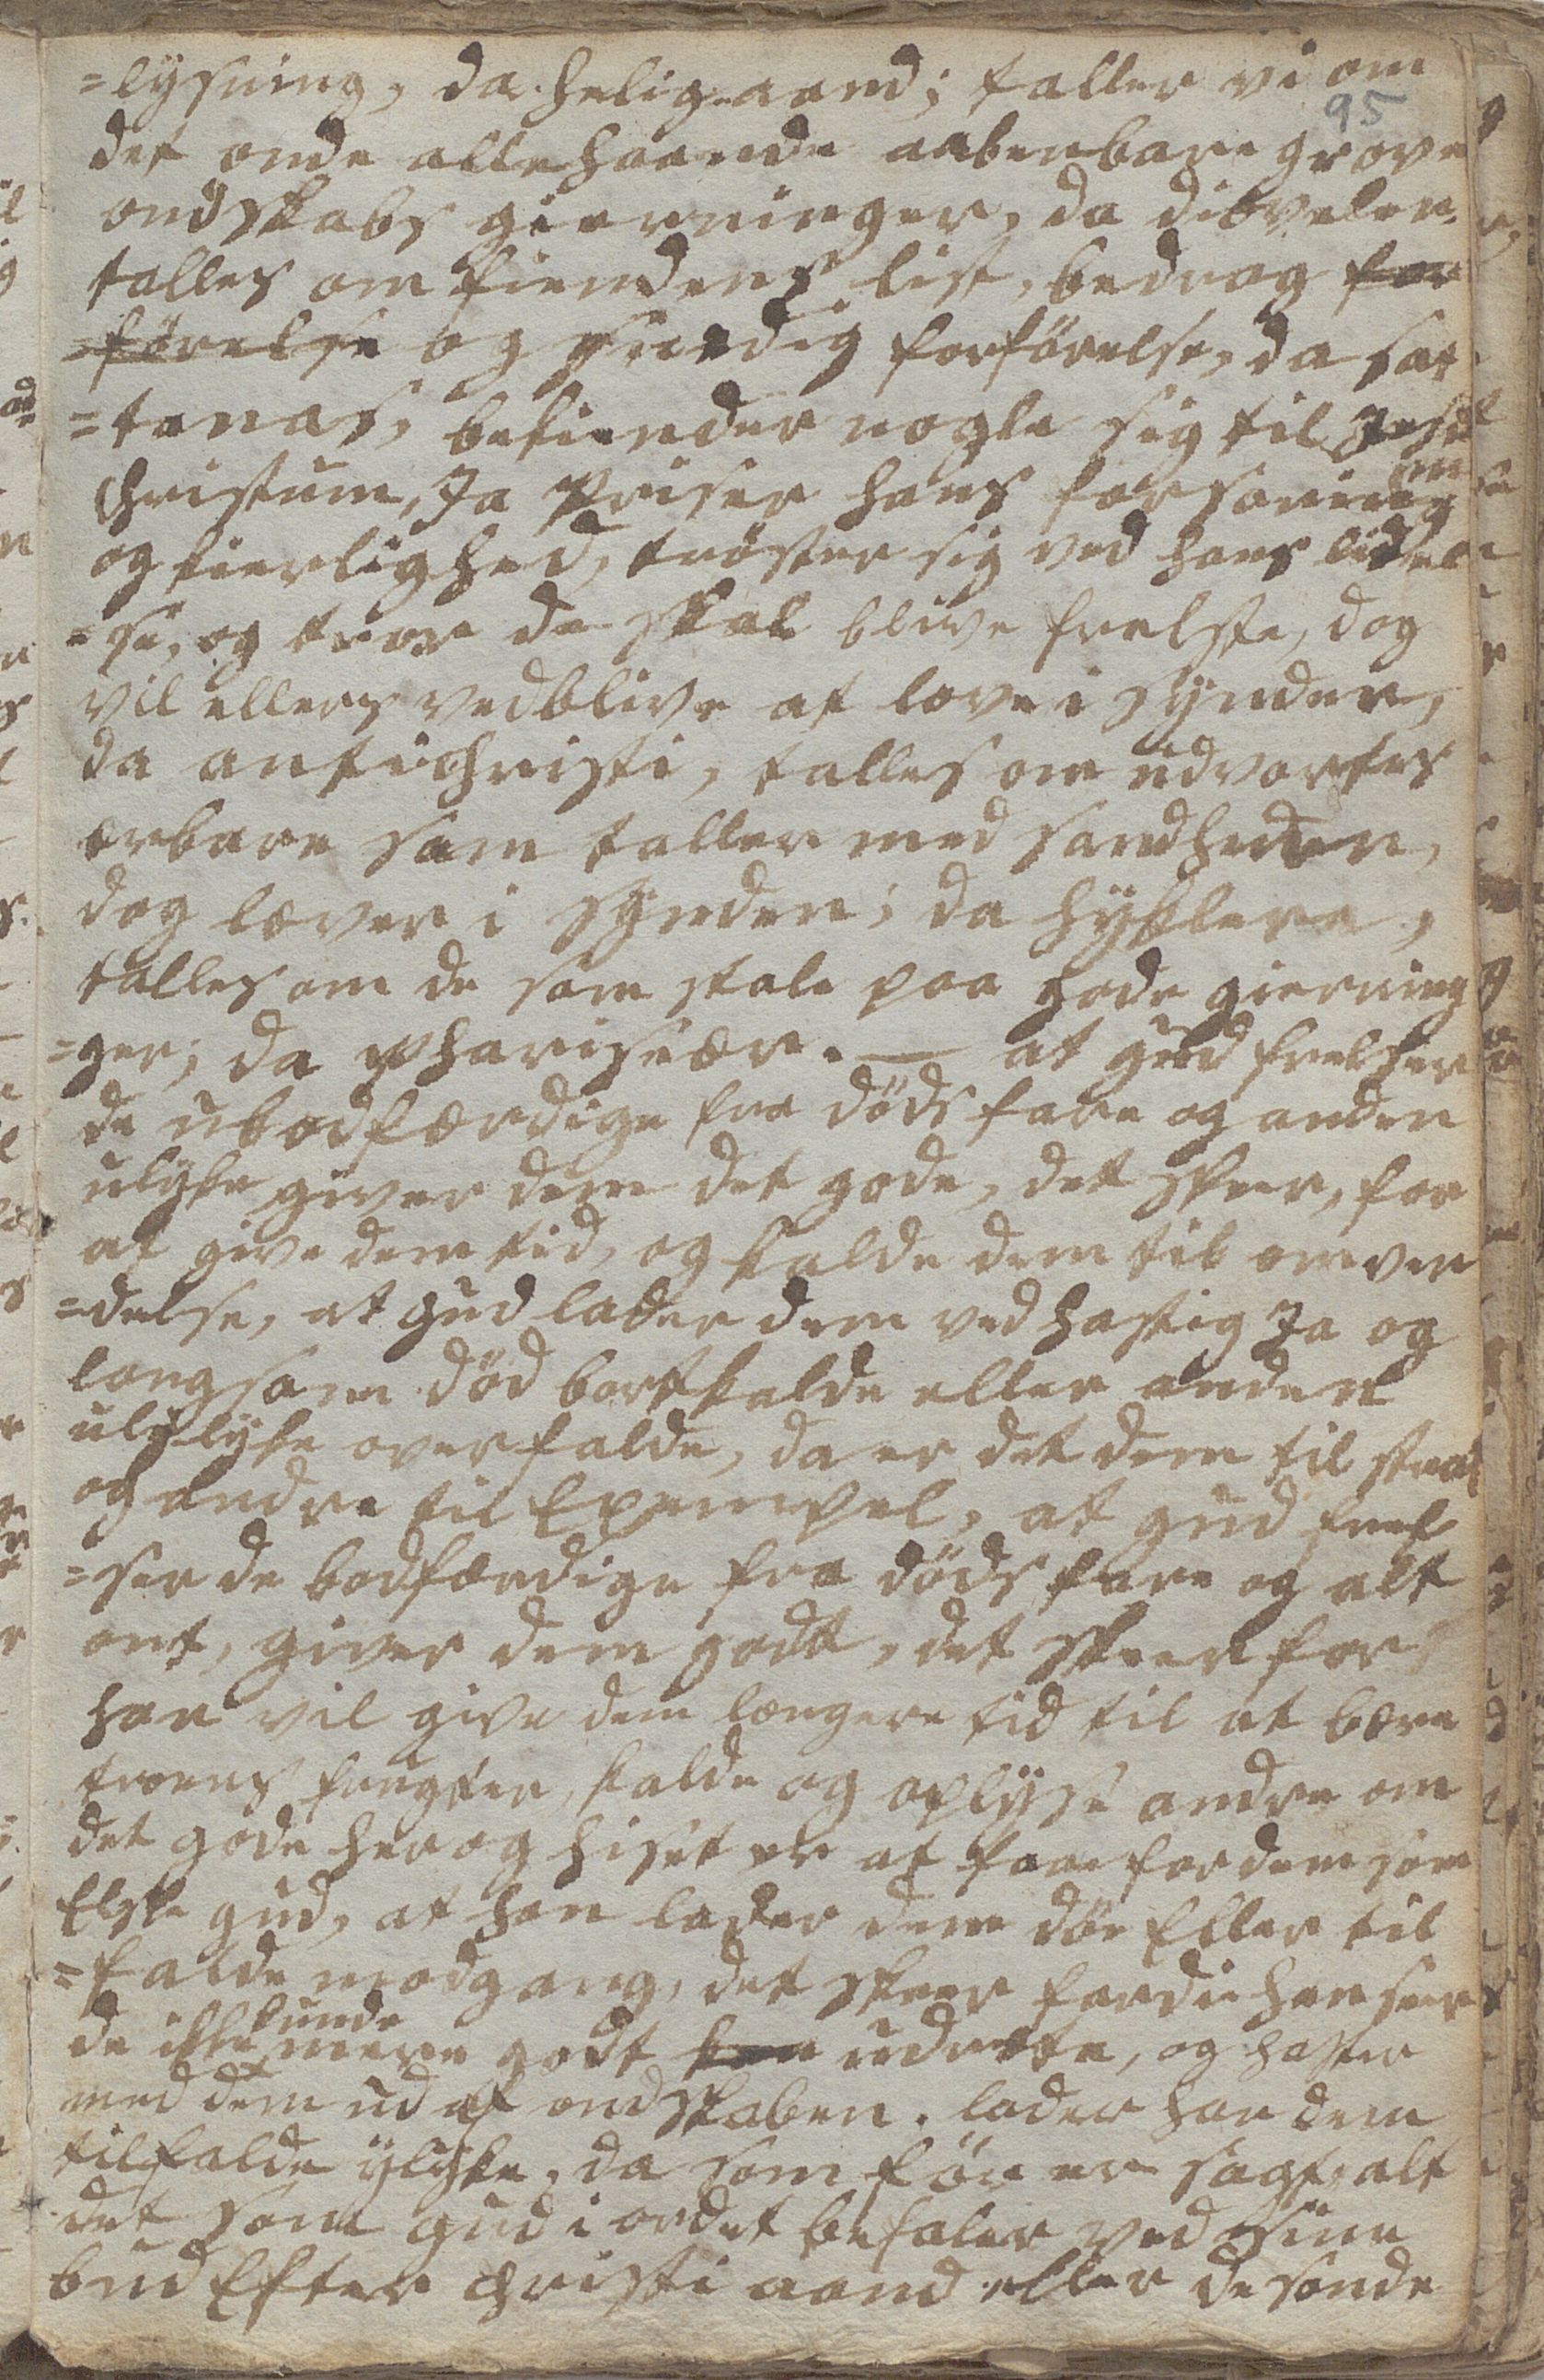 =lysning, da helig-aand; taller vi om
95
det onde allehaande aabenbare grove
ondskabs gierninger, da divelen,
talles om fiendens list, bedrag for
=førelse og snedig forførelse, da sa
=tanas, bekiender nogle sig til Jesu
Christum, Ja priser hans forsoning
og kierlighed, trøster sig ved hans lidel
=se, og troer de skal blive frelste, dog
vil ellers vedblive at leve i synden,
da antichristi, talles om udvortes
erbare som taller med sandheden,
dog lever i synden; da hyklere,
talles om de som stole paa gode gierning
=ger; da Pharisæer. — at gud frelser
de ubodfærdige fra døds fare og anden
ulyke giver dem det gode, det skeer, for
at give dem tid, og kalde dem til omven
=delse, at gud lader dem ved hastig Ja og
langsom død bortkalde eller anden
ulylyke overfalde, da er det dem til straf
og andre til Exempel, at gud frel
=ser de bodfærdige fra døds fare og alt
ont, giver dem godt, det skeer for
han vil give dem længere tid til at bære
troens frugter, kalde og oplyse andre om
det gode her og hiset er at faae for dem som
Elske gud, at han lader dem døe Eller til
=falde modgang, det skeer fordi han seer
de ikke kunde mere godt kan udrette, og haster
med dem ud af ondskaben. lader han dem
tilfalde ulyke, da som før er sagt, alt
det som gud i ordet befaler ved sine
bud Efter Christi aand eller de sande